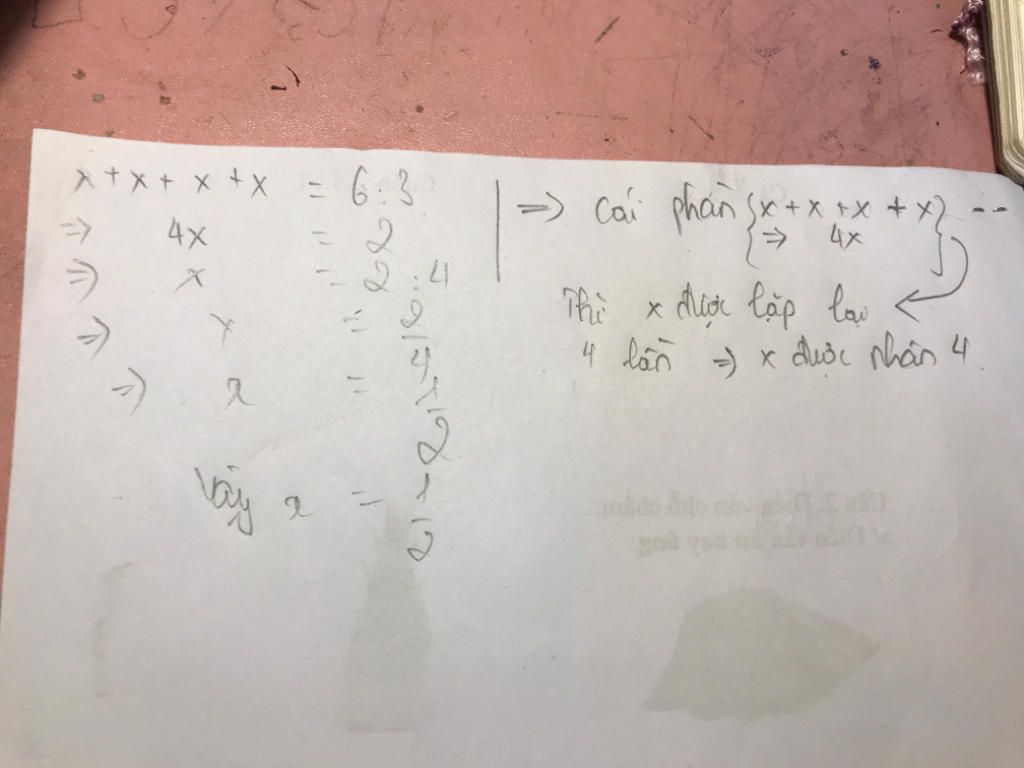 x + x + x + x = 6 : 3
=> 4x = 2
=> x = 2 : 4
=> x = 2/4
=> x = 1/2
Vậy x = 1/2
=> Cái phần {x + x + x + x} --
{=> 4x}
Thì x được lặp lại
4 lần => x được nhân 4
Câu 2. Điền vào chỗ chấm:
a/ Điền vần ăn hay ăng: